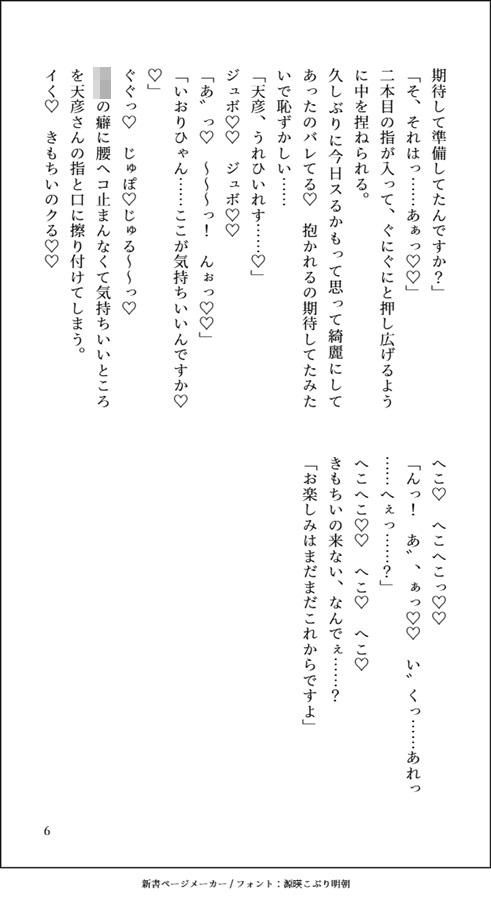 期待して準備してたんですか？」
「そ、それはっ……あぁっ♡♡」
二本目の指が入って、ぐにぐにと押し広げるよう
に中を捏ねられる。
久しぶりに今日スるかもって思って綺麗にして
あったのバレてる♡　抱かれるの期待してたみた
いで恥ずかしい……
「天彦、うれひいれす……♡」
ジュボ♡♡　ジュボ♡♡
「あ゛っ♡　～～～っ！　んぉっ♡♡」
「いおりひゃん……ここが気持ちいいんですか♡
♡」
ぐぐっ♡　じゅぽ♡じゅる～～っ♡
の癖に腰ヘコ止まんなくて気持ちいいところ
を天彦さんの指と口に擦り付けてしまう。
イく♡　きもちいのクる♡♡
へこ♡　へこへこっ♡♡
「んっ！　あ゛、ぁっ♡♡　い゛くっ……あれっ
……へぇっ……？」
へこへこ♡♡　へこ♡　へこ♡
きもちいの来ない、なんでぇ……？
「お楽しみはまだまだこれからですよ」
6
新書ページメーカー / フォント：源暎こぶり明朝